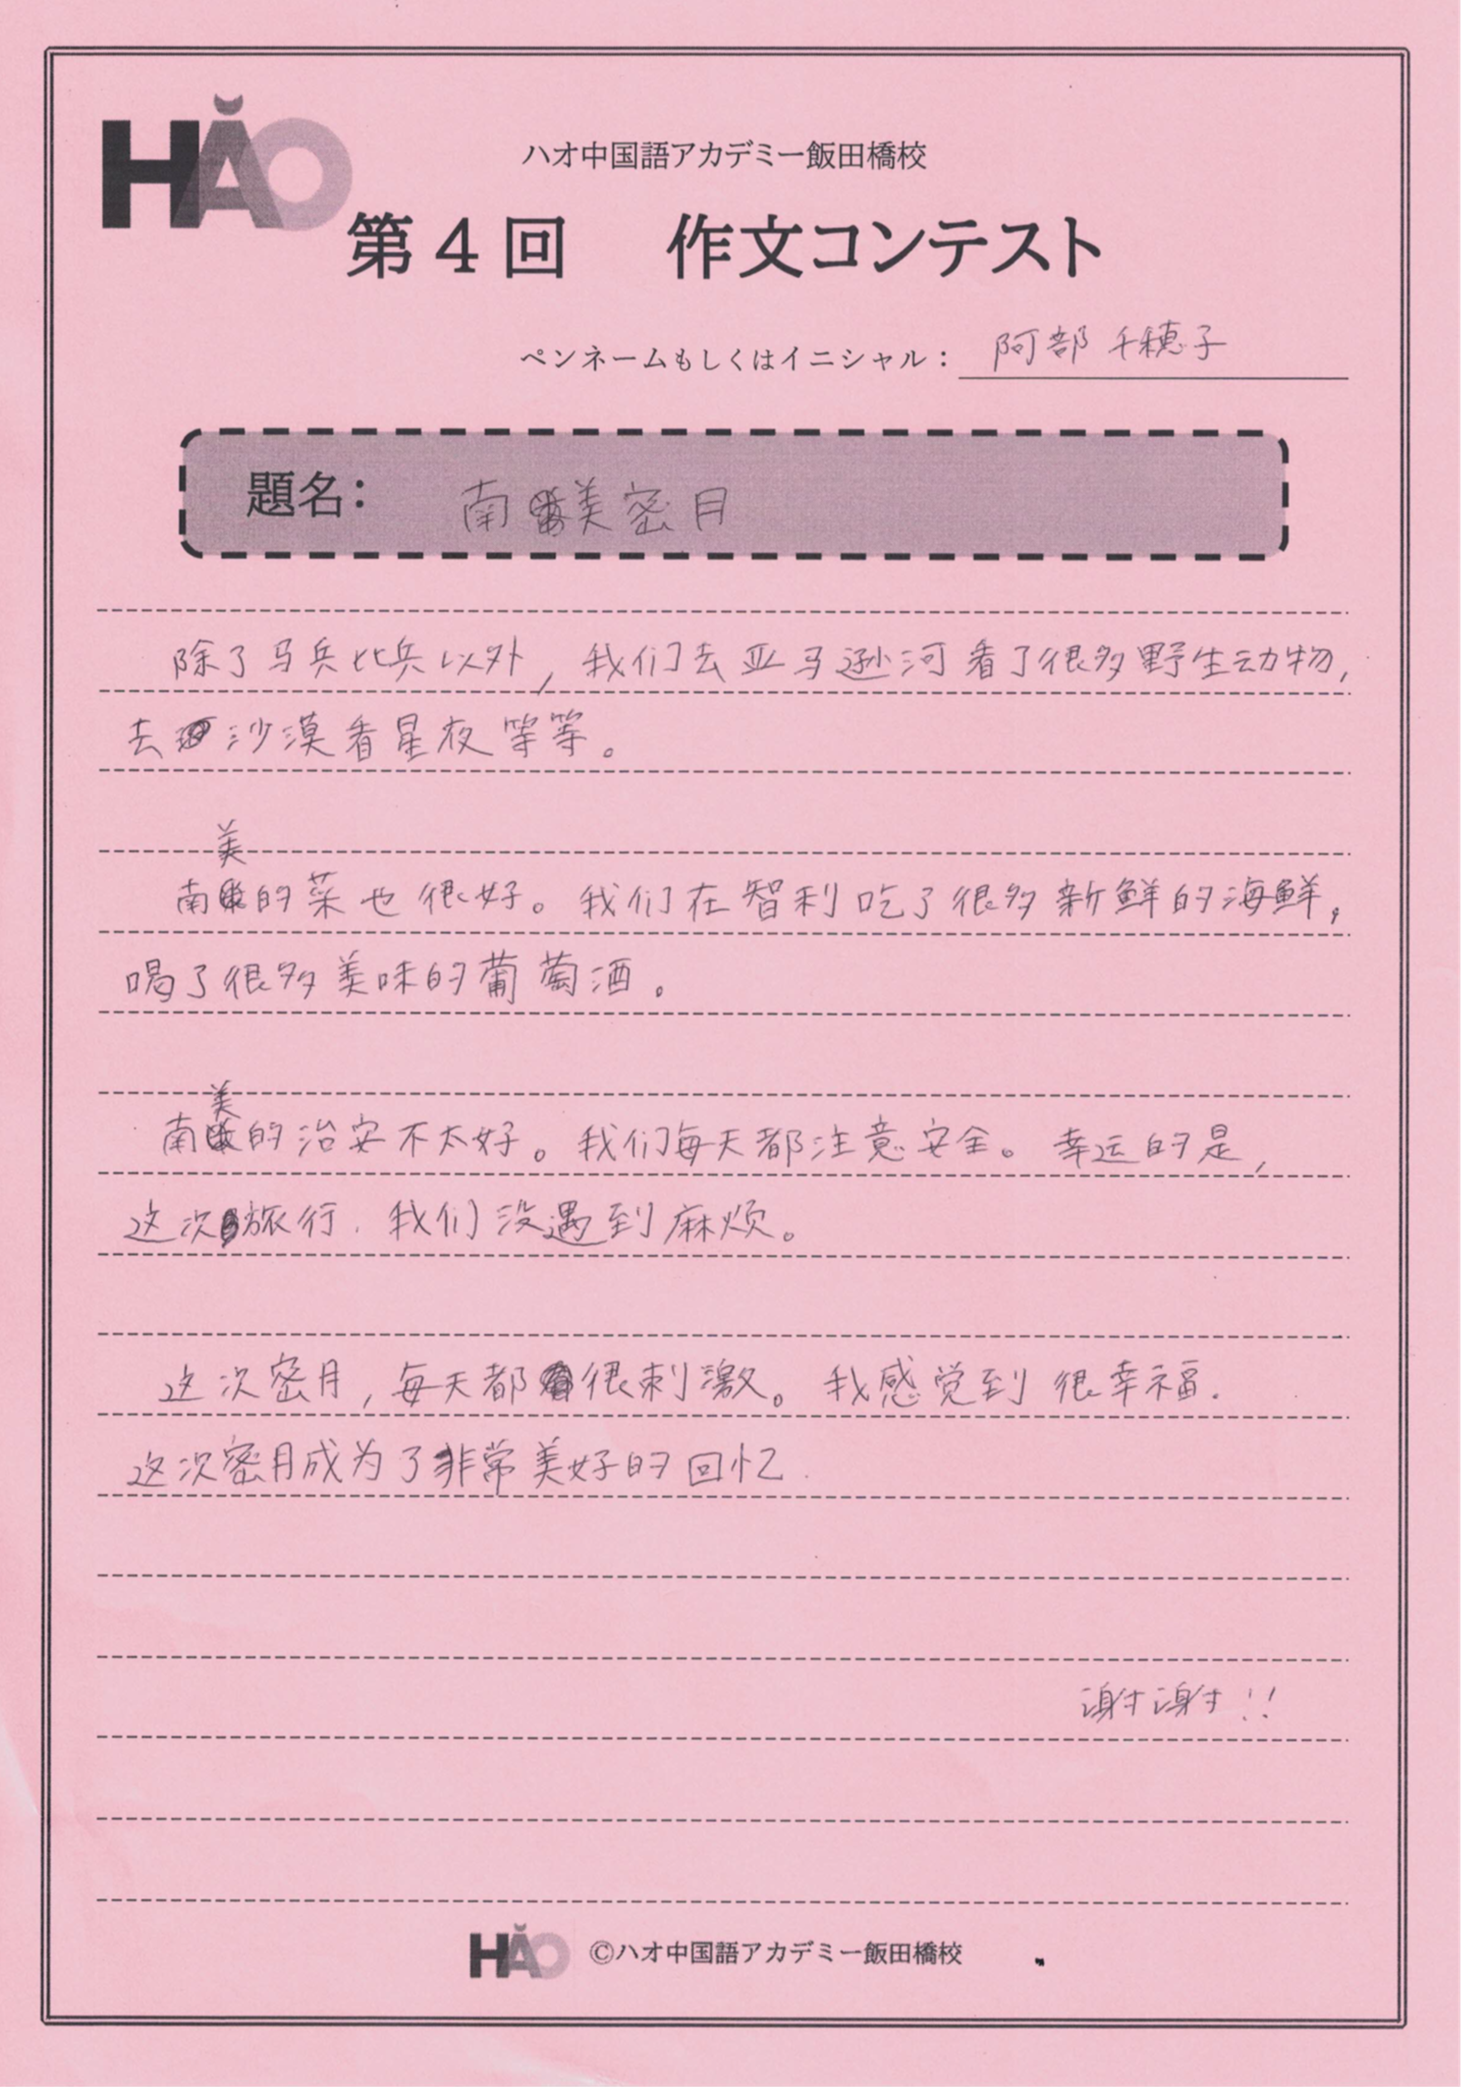 HǍO
ハオ中国語アカデミー飯田橋校
第4回 作文コンテスト
ペンネームもしくはイニシャル：阿部 千穂子
題名： 南美密月
除了马兵比兵以外，我们去亚马逊河看了很多野生动物，
去沙漠看星夜等等。
美
南的菜也很好。我们在智利吃了很多新鲜的海鲜，
喝了很多美味的葡萄酒。
美
南的治安不太好。我们每天都注意安全。幸运的是，
这次旅行，我们没遇到麻烦。
这次密月，每天都很刺激。我感觉到很幸福．
这次密月成为了非常美好的回忆．
谢谢!!
HǍO ©ハオ中国語アカデミー飯田橋校